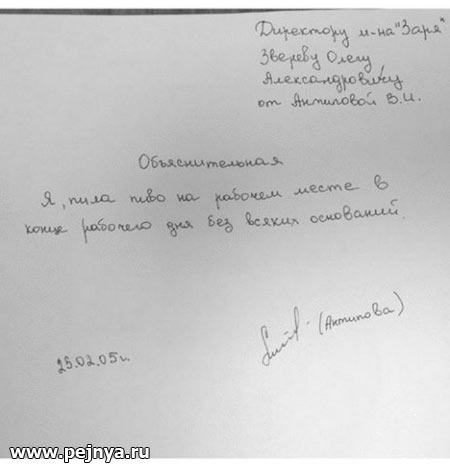 Директору м-на "Заря"
Звереву Олегу
Александровичу
от Антиповой В.И.
Объяснительная
Я, пила пиво на рабочем месте в
конце рабочего дня без всяких оснований.
(Антипова)
25.02.05г.
www.pejnya.ru